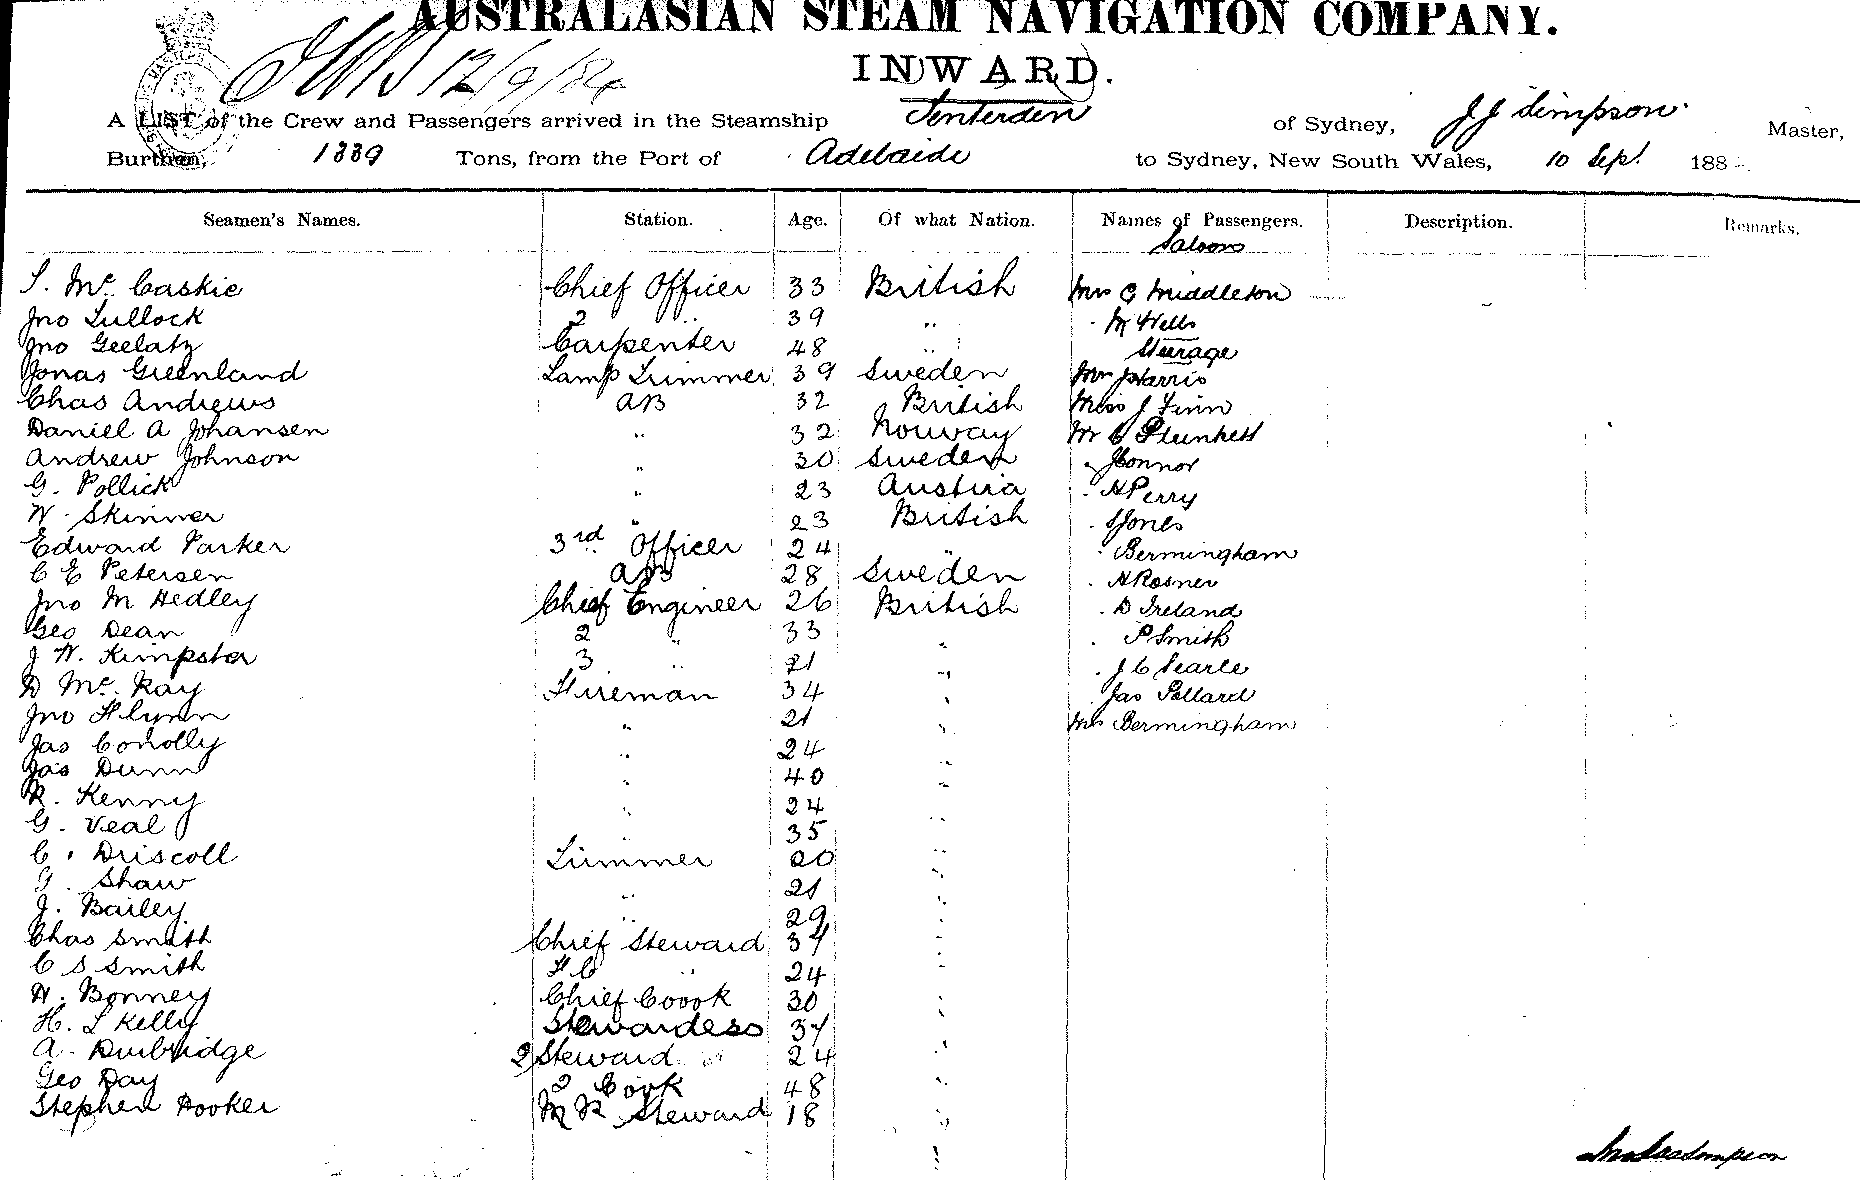 AUSTRALASIAN STEAM NAVIGATION COMPANY.
INWARD.
12/9/84
A LIST of the Crew and Passengers arrived in the Steamship Tenterden of Sydney, J J Simpson Master,
Burthen, 1339 Tons, from the Port of Adelaide to Sydney, New South Wales, 10 Sept. 188
Seamen's Names. Station. Age. Of what Nation. Names of Passengers. Description. Remarks.
Saloon
S. Mc Caskie Chief Officer 33 British Mrs C Middleton
Jno Tullock 2 " 39 " " M Wells
Jno Geelatz Carpenter 48 " Steerage
Jonas Greenland Lamp Trimmer 39 Sweden Mrs Harris
Chas Andrews AB 32 British Miss J Finn
Daniel A Johansen " 32 Norway Mr C Plunkett
Andrew Johnson " 30 Sweden " J Connor
G. Pollick " 23 Austria " H Perry
W. Skinner " 23 British " S Jones
Edward Parker 3rd Officer 24 " " Bermingham
C E Petersen AB 28 Sweden " H Rosner
Jno M Hedley Chief Engineer 26 British " D Ireland
Geo Dean 2 " 33 " " P Smith
J W. Kimpster 3 " 21 " " J C Searle
D Mc. Kay Fireman 34 " Jas Pollard
Jno Flynn " 21 " Mrs Bermingham
Jas Conolly " 24 "
Jas Dunn " 40 "
R. Kenny " 24 "
G. Veal " 35 "
C. Driscoll Trimmer 20 "
G. Shaw " 21 "
J. Bailey " 29 "
Chas Smith Chief Steward 37 "
C S Smith F C " 24 "
H. Bonney Chief Coook 30 "
H. L Kelly Stewardess 37 "
A. Durbridge 2 Steward 24 "
Geo Day 2 Cook 48 "
Stephen Hooker M R Steward 18 "